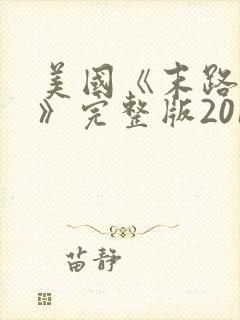 美國《末路
》完整版201
苗静